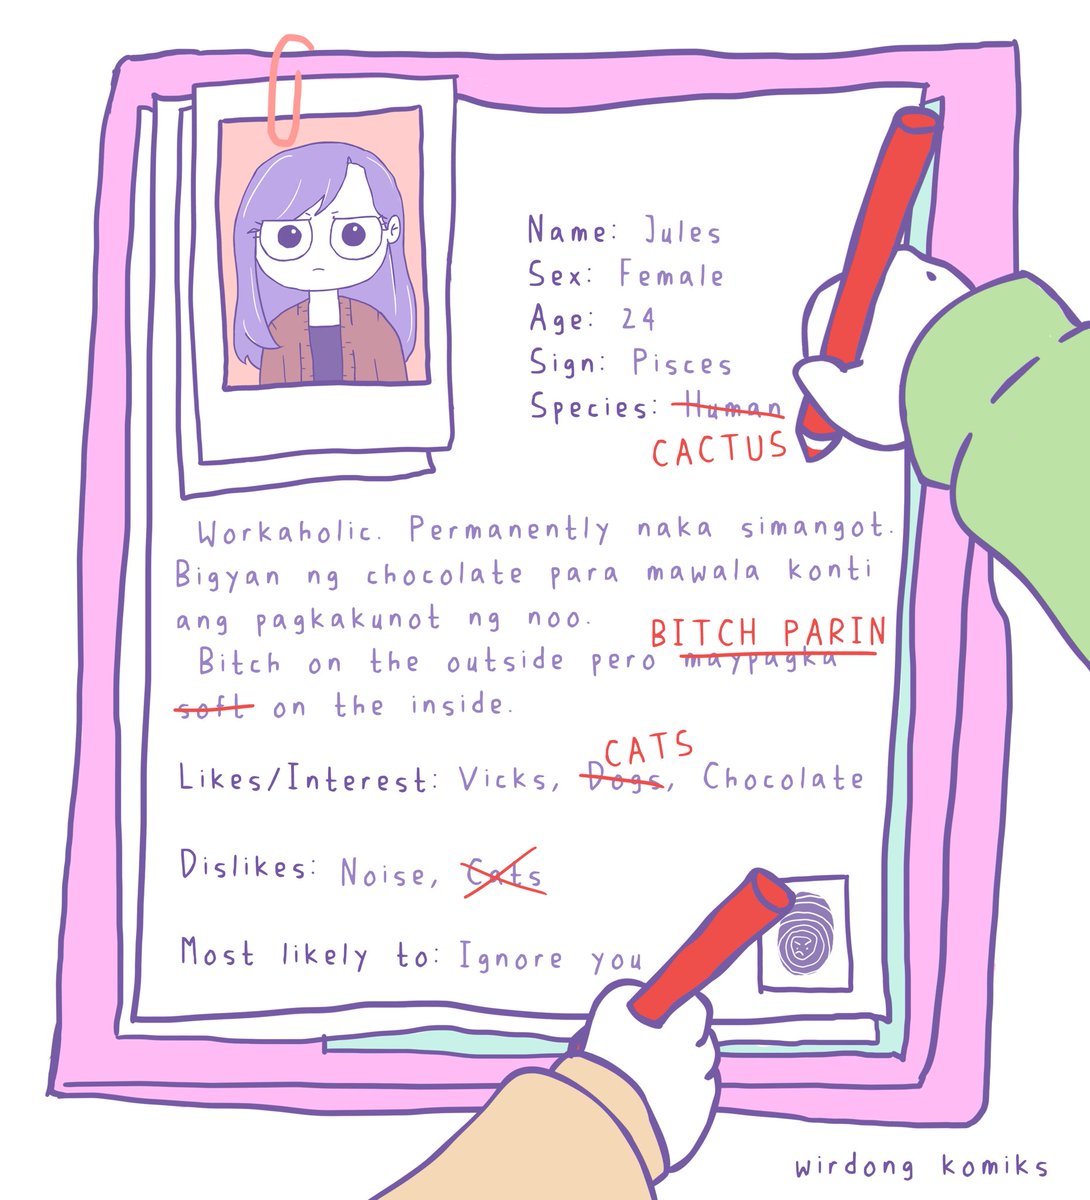 Name: Jules
Sex: Female
Age: 24
Sign: Pisces
Species: Human
CACTUS
Workaholic. Permanently naka simangot.
Bigyan ng chocolate para mawala konti
ang pagkakunot ng noo.
BITCH PARIN
Bitch on the outside pero maypagka
soft on the inside.
CATS
Likes/Interest: Vicks, Dogs, Chocolate
Dislikes: Noise, Cats
Most likely to: Ignore you
wirdong komiks